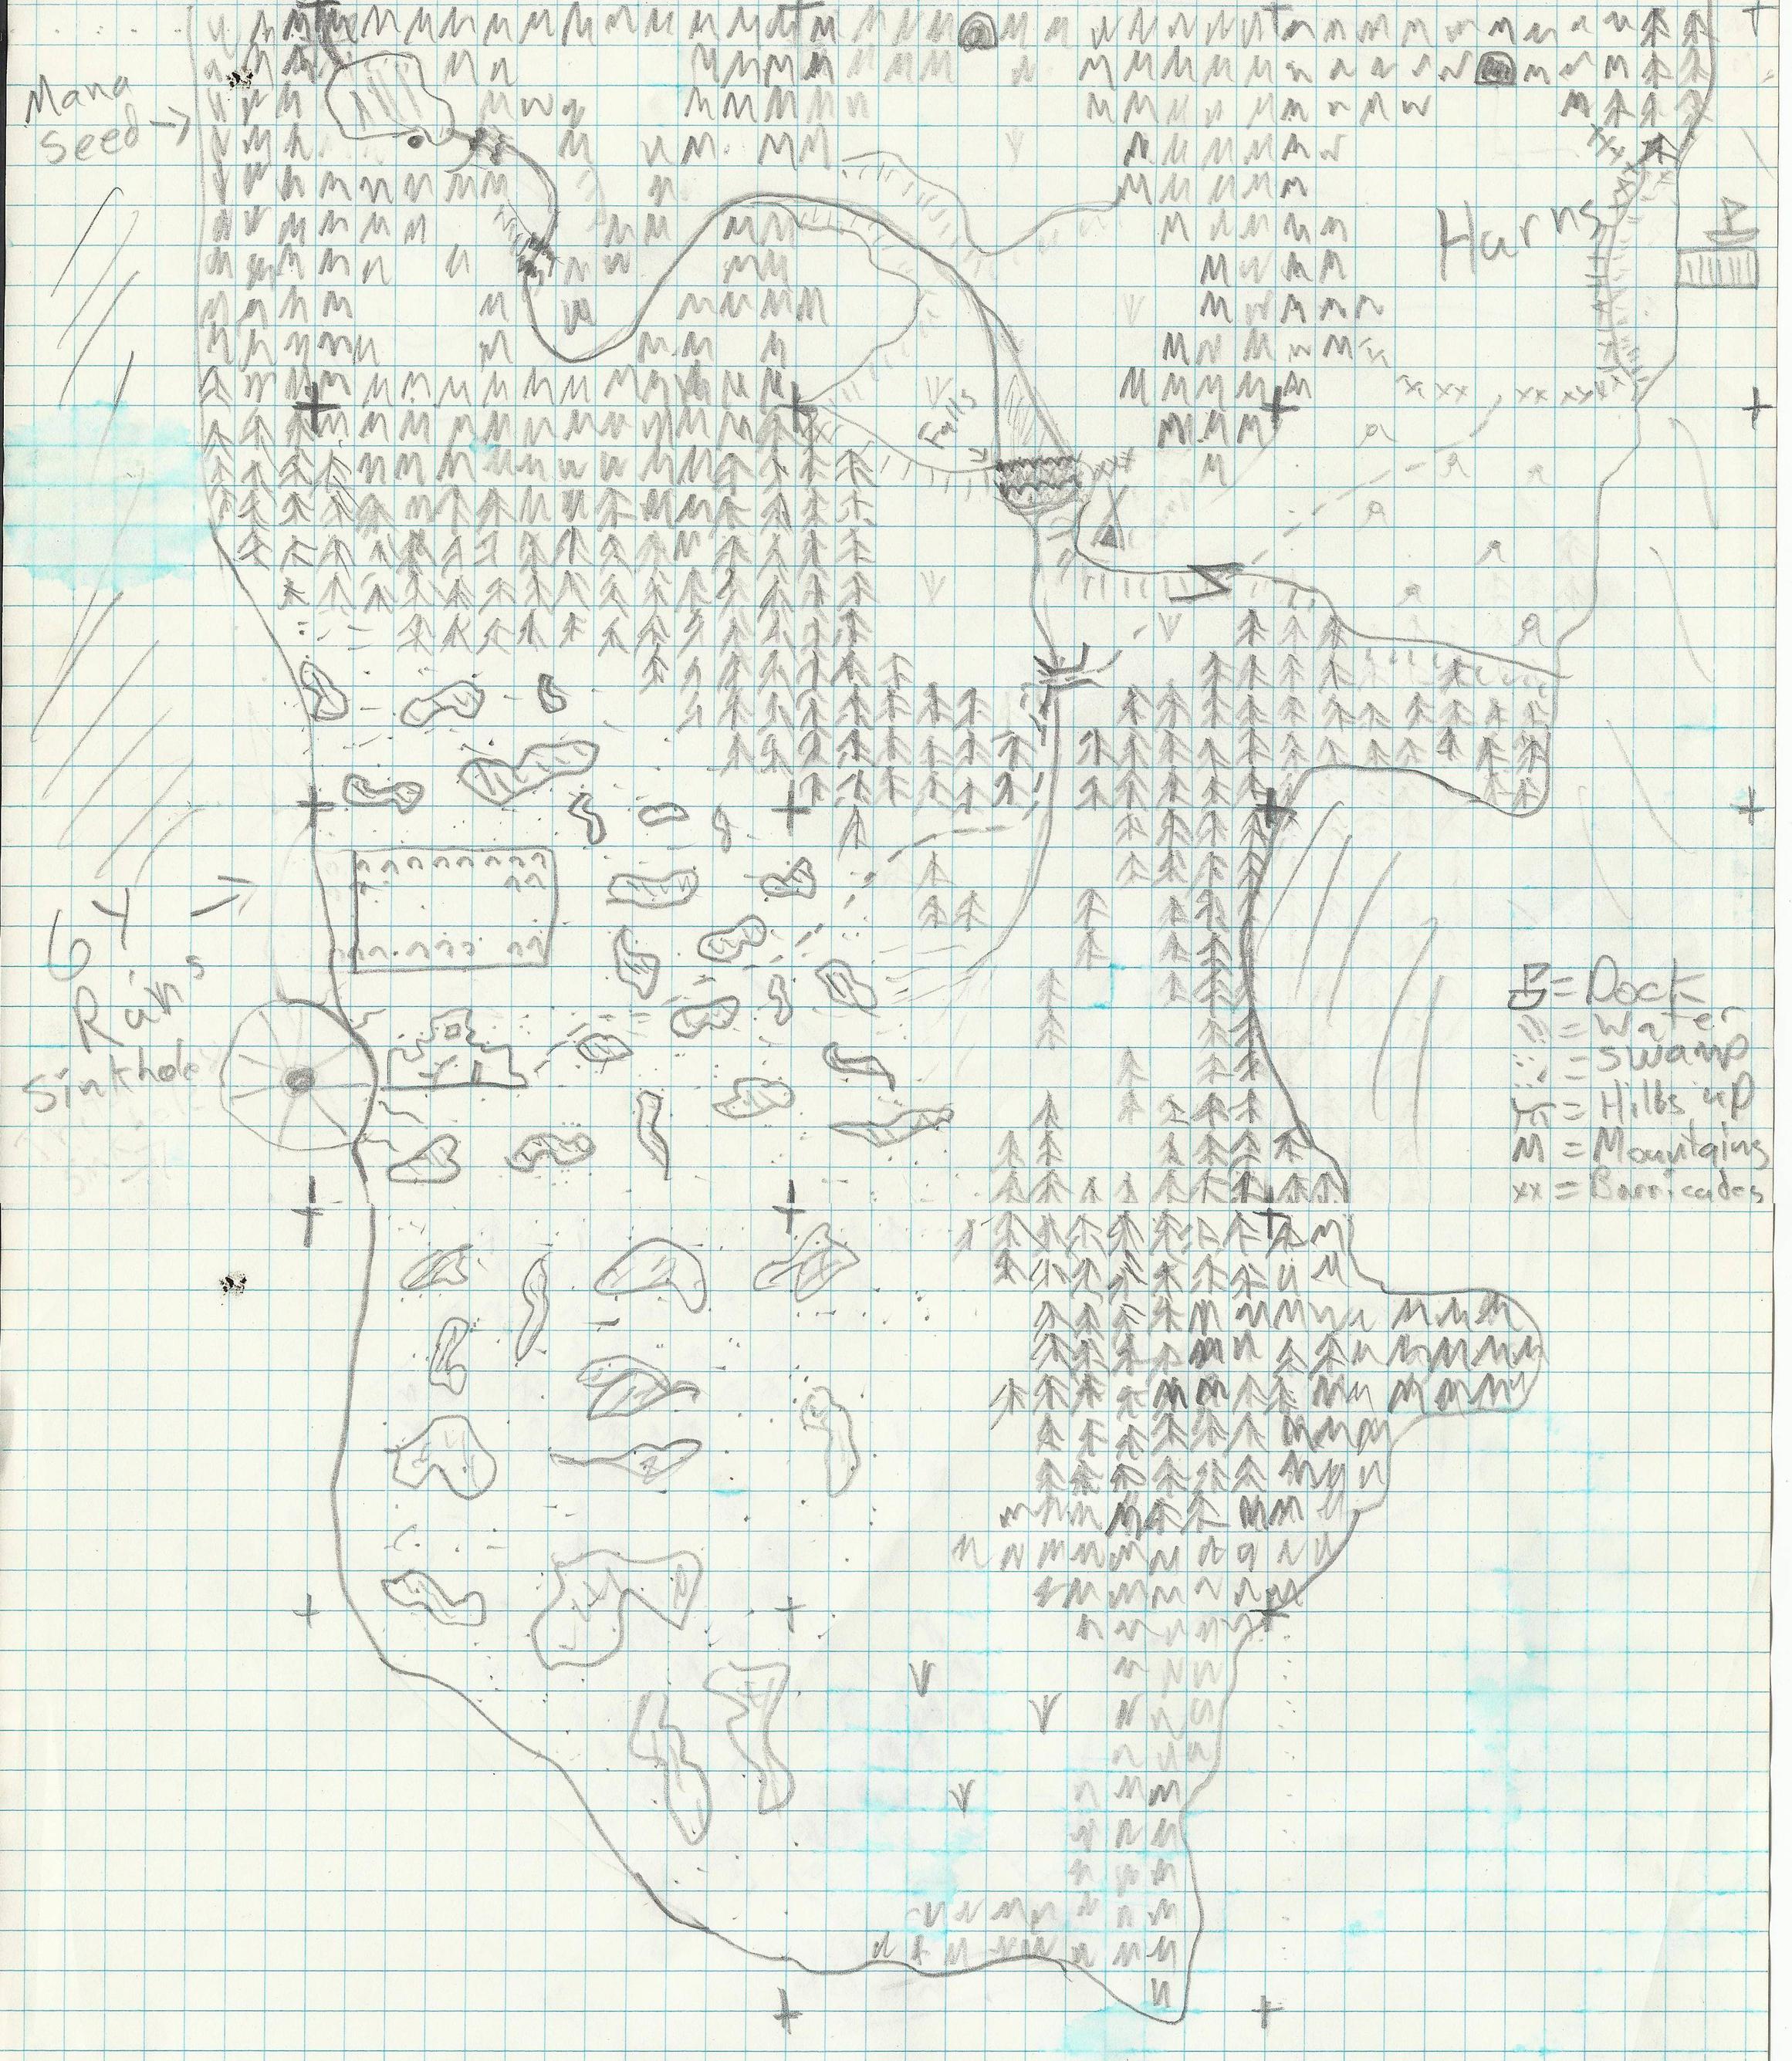 Mana
Seed
Harns
Falls
Ruins
Sinkhole
= Dock
= Water
= Swamp
= Hills up
M = Mountains
xx = Barricades